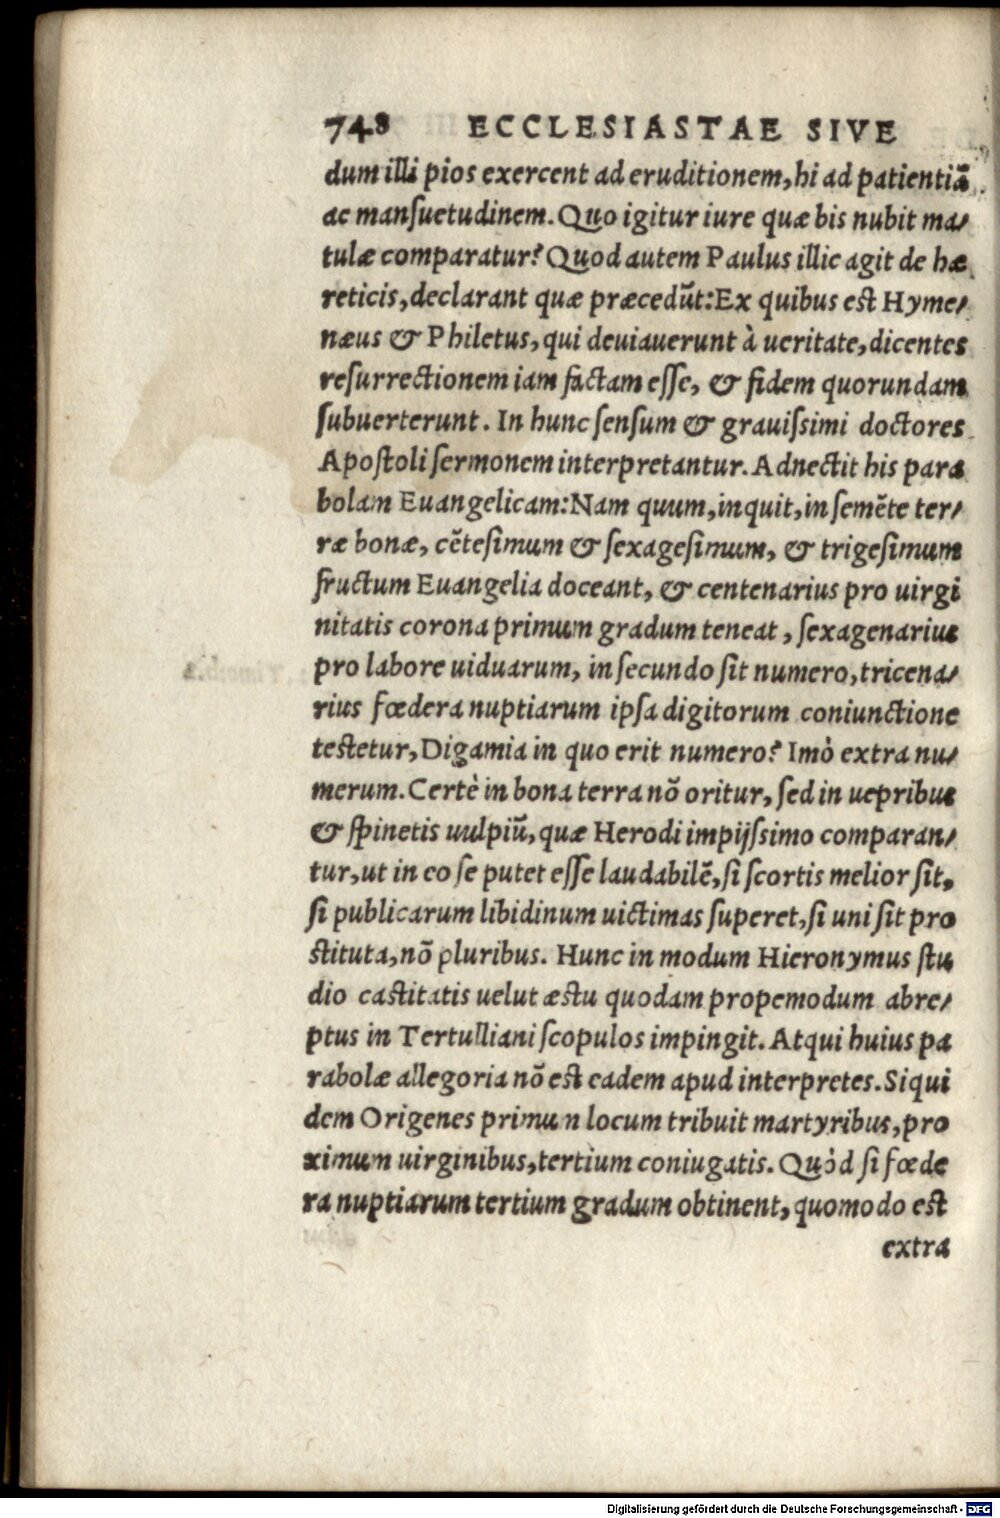 748 ECCLESIASTAE SIVE
dum illi pios exercent ad eruditionem, hi ad patientiã
ac mansuetudinem. Quo igitur iure quæ bis nubit ma/
tulæ comparatur? Quod autem Paulus illic agit de hæ
reticis, declarant quæ præcedũt: Ex quibus est Hyme/
næus & Philetus, qui deuiauerunt à ueritate, dicentes
resurrectionem iam factam esse, & fidem quorundam
subuerterunt. In hunc sensum & grauissimi doctores
Apostoli sermonem interpretantur. Adnectit his para
bolam Euangelicam: Nam quum, inquit, in semẽte ter/
ræ bonæ, cẽtesimum & sexagesimum, & trigesimum
fructum Euangelia doceant, & centenarius pro uirgi
nitatis corona primum gradum teneat, sexagenarius
pro labore uiduarum, in secundo sit numero, tricena/
rius fœdera nuptiarum ipsa digitorum coniunctione
testetur, Digamia in quo erit numero? Imò extra nu/
merum. Certè in bona terra nõ oritur, sed in uepribus
& spinetis uulpiũ, quæ Herodi impijssimo comparan/
tur, ut in eo se putet esse laudabilẽ, si scortis melior sit,
si publicarum libidinum uictimas superet, si uni sit pro
stituta, nõ pluribus. Hunc in modum Hieronymus stu
dio castitatis uelut æstu quodam propemodum abre/
ptus in Tertulliani scopulos impingit. Atqui huius pa
rabolæ allegoria nõ est eadem apud interpretes. Siqui
dem Origenes primum locum tribuit martyribus, pro
ximum uirginibus, tertium coniugatis. Quòd si fœde
ra nuptiarum tertium gradum obtinent, quomodo est
extra
Digitalisierung gefördert durch die Deutsche Forschungsgemeinschaft - DFG